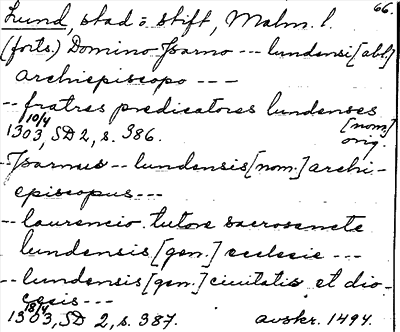 66.
Lund, stad o stift, Malm. l.
(forts.) Domino Ysarno --- lundensi [abl.]
archiepiscopo ---
-- fratres predicatores lundenses [nom.]
10/4 1303, SD 2, s. 386. orig.
-- Ysarnus -- lundensis [nom.] archi-
episcopus ---
-- laurencio tutore sacrosancte
lundensis [gen.] ecclesie ---
-- lundensis [gen.] ciuitatis et dio-
cesis ---
18/4 1303, SD 2, s. 387. avskr. 1494.